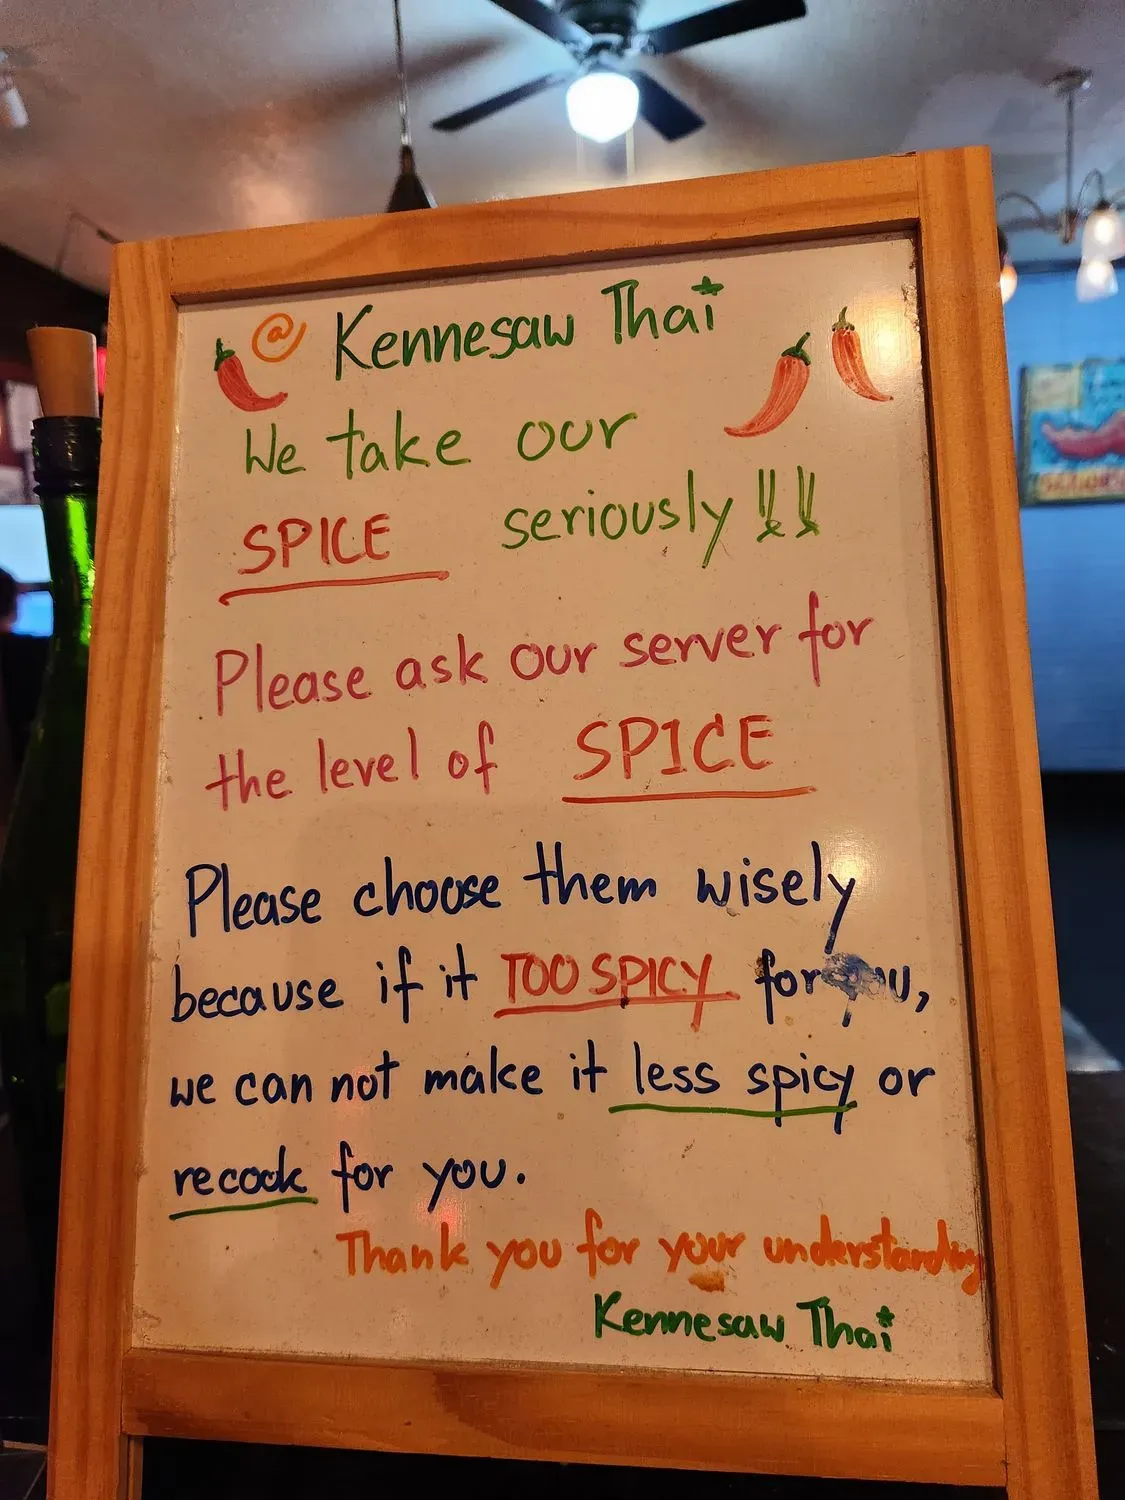 @ Kennesaw Thai
We take our
SPICE seriously !!!!
Please ask our server for
the level of SPICE
Please choose them wisely
because if it TOO SPICY for you,
we can not make it less spicy or
recook for you.
Thank you for your understanding
Kennesaw Thai